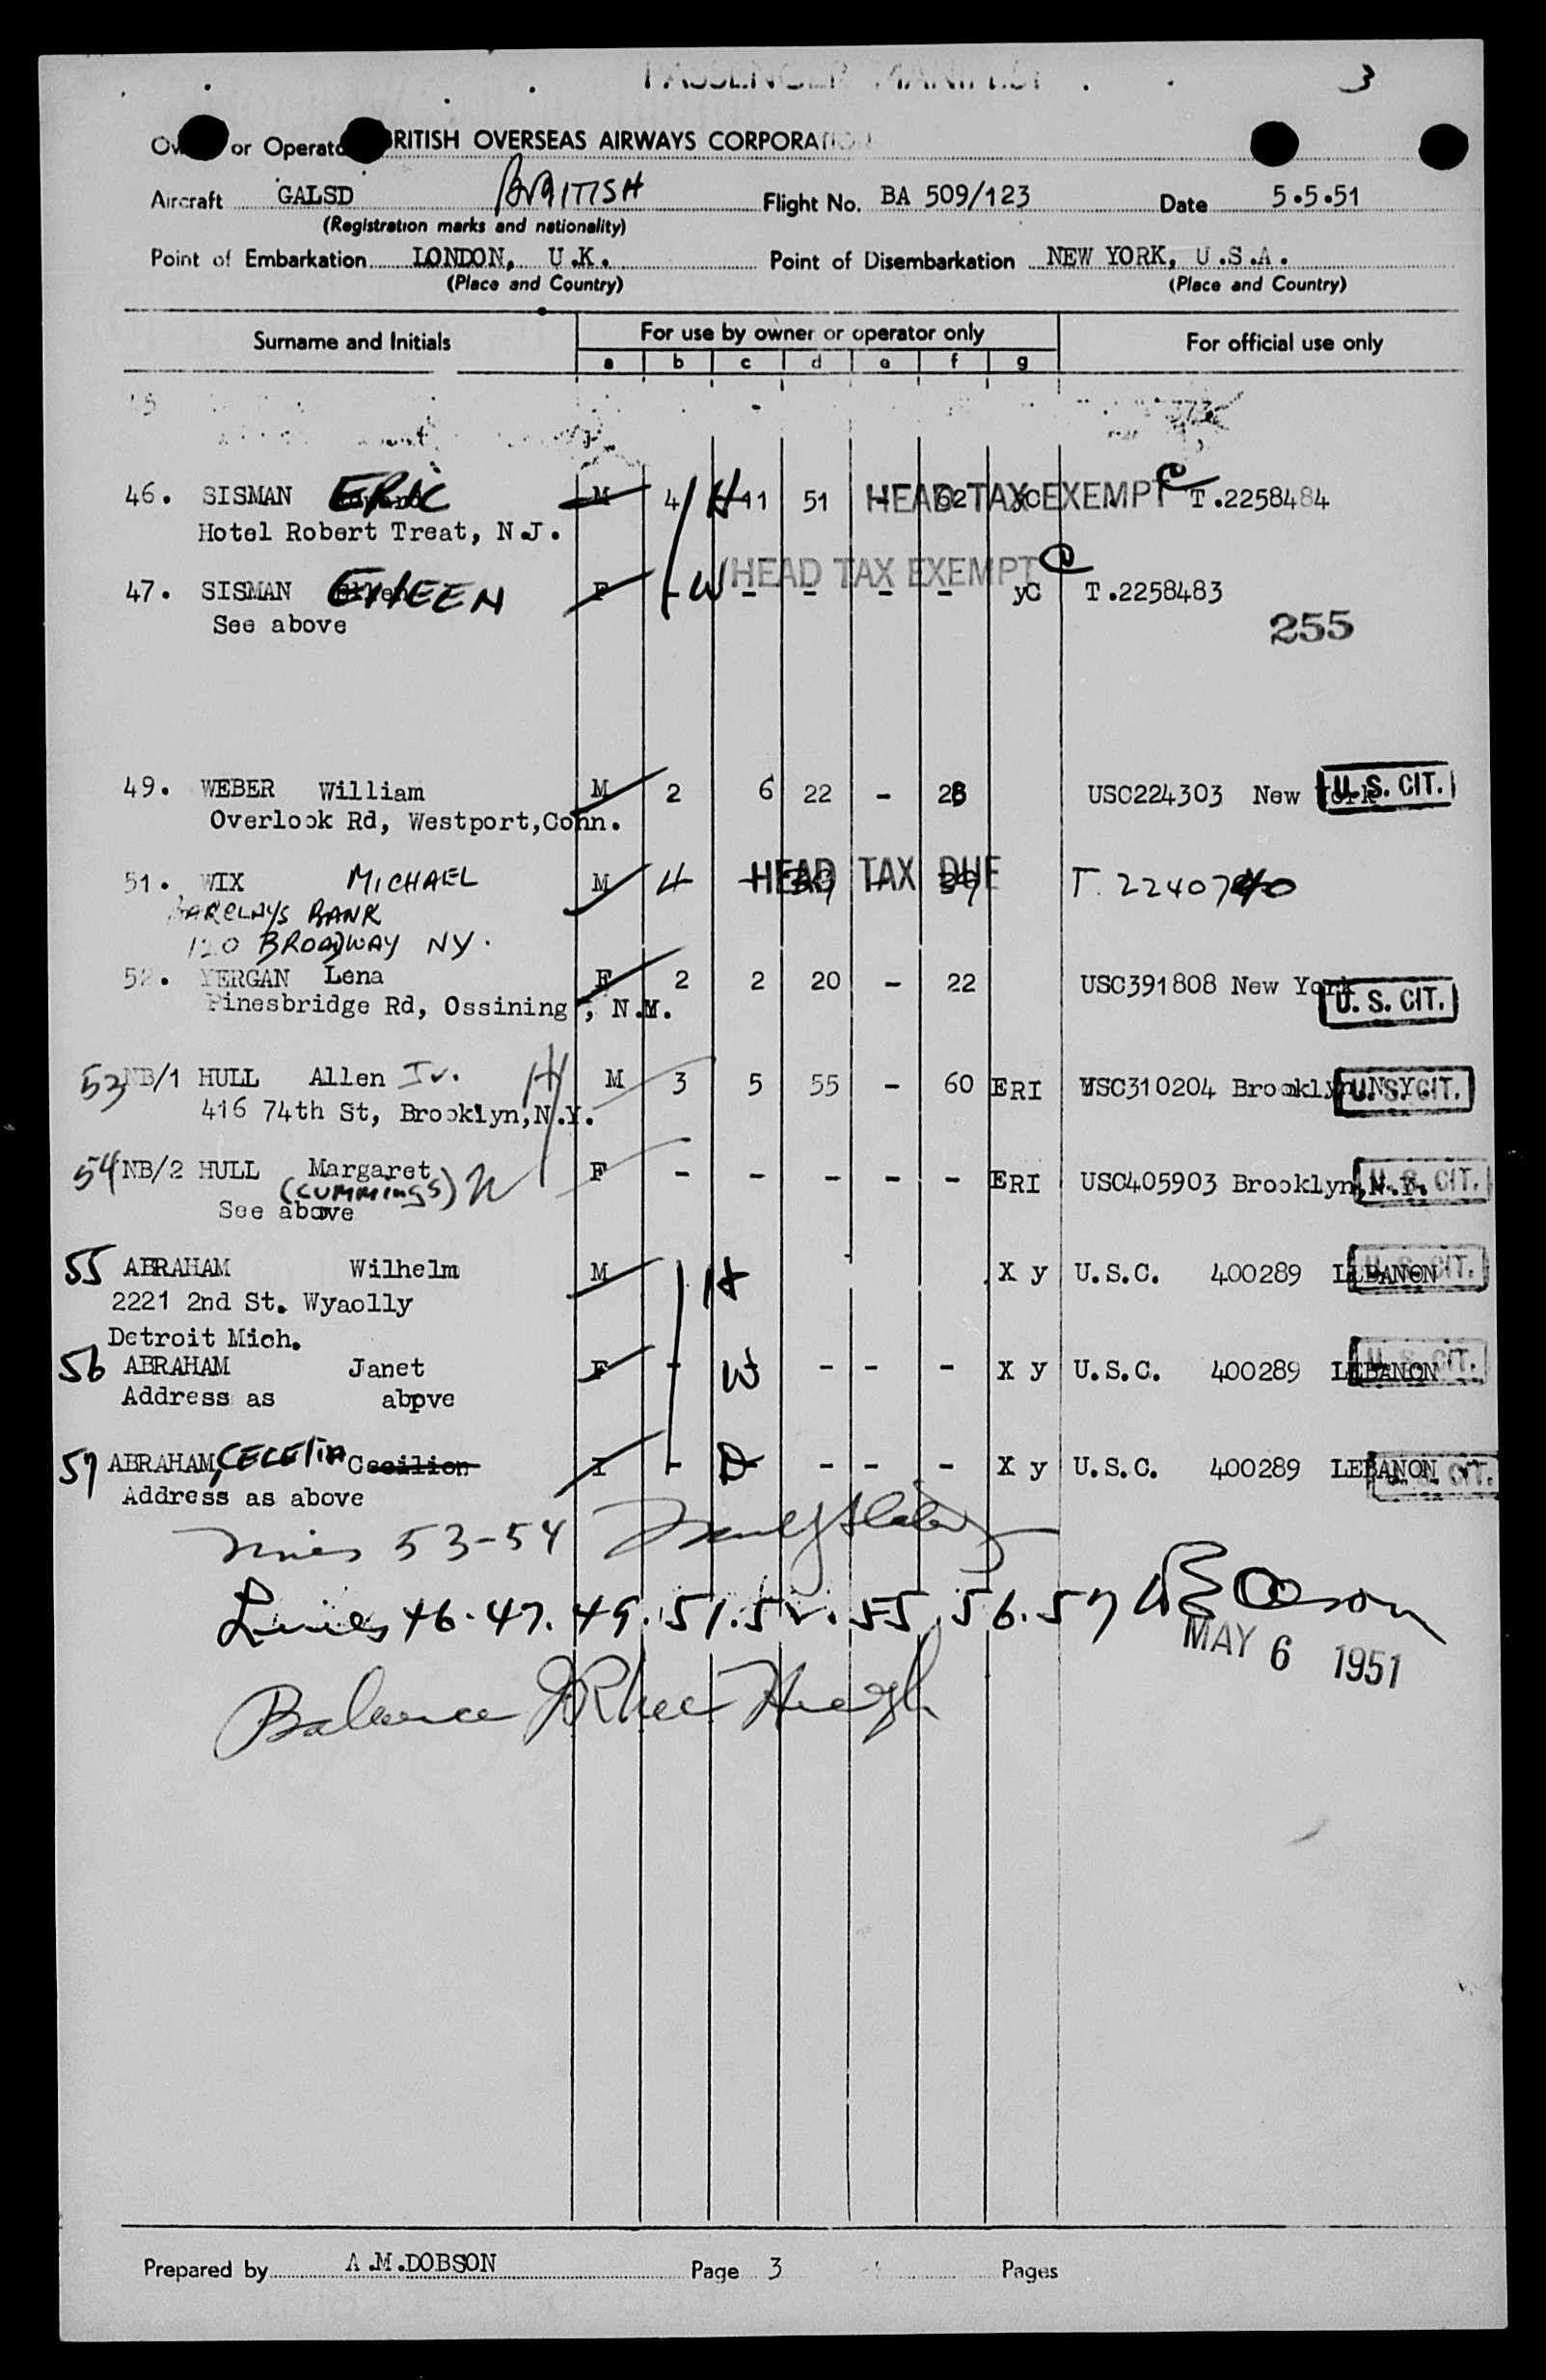 PASSENGER MANIFEST 3
or Operator BRITISH OVERSEAS AIRWAYS CORPORATION
Aircraft GALSD BRITISH Flight No. BA 509/123 Date 5.5.51
(Registration marks and nationality)
Point of Embarkation LONDON, U.K. Point of Disembarkation NEW YORK, U.S.A.
(Place and Country) (Place and Country)
Surname and Initials For use by owner or operator only For official use only
a b c d e f g
46. SISMAN ERIC M 4 H 11 51 - 62 yC HEAD TAX EXEMPT C T.2258484
Hotel Robert Treat, N.J.
HEAD TAX EXEMPT C
47. SISMAN EILEEN F - W - - - - yC T.2258483
See above
255
49. WEBER William M 2 6 22 - 28 USC224303 New York U. S. CIT.
Overlook Rd, Westport, Conn.
51. WIX MICHAEL M 4 - 39 - 39 HEAD TAX DUE T. 2240740
BARCLAYS BANK
120 BROADWAY NY.
52. YERGAN Lena F 2 2 20 - 22 USC391808 New York U. S. CIT.
Pinesbridge Rd, Ossining, N.Y.
53 NB/1 HULL Allen Jr. H M 3 5 55 - 60 ERI USC310204 Brooklyn, N.Y. U. S. CIT.
416 74th St, Brooklyn, N.Y.
54 NB/2 HULL Margaret F - - - - - ERI USC405903 Brooklyn, N.Y. U. S. CIT.
(CUMMINGS) W
See above
55 ABRAHAM Wilhelm M H X y U.S.C. 400289 LEBANON U. S. CIT.
2221 2nd St. Wyaolly
Detroit Mich.
56 ABRAHAM Janet F - W - - - X y U.S.C. 400289 LEBANON U. S. CIT.
Address as abpve
57 ABRAHAM, CECELIA Cecilion I - D - - - X y U.S.C. 400289 LEBANON U. S. CIT.
Address as above
Lines 53-54
Lines 46. 47. 49. 51. 52. 55. 56. 57
MAY 6 1951
Balance
Prepared by A.M.DOBSON Page 3 Pages